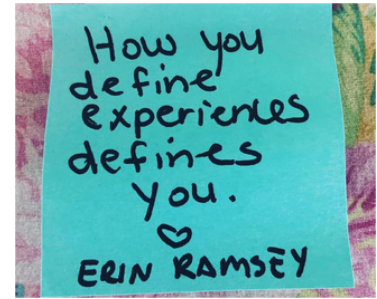 How you
define
experiences
defines
you.
ERIN RAMSEY